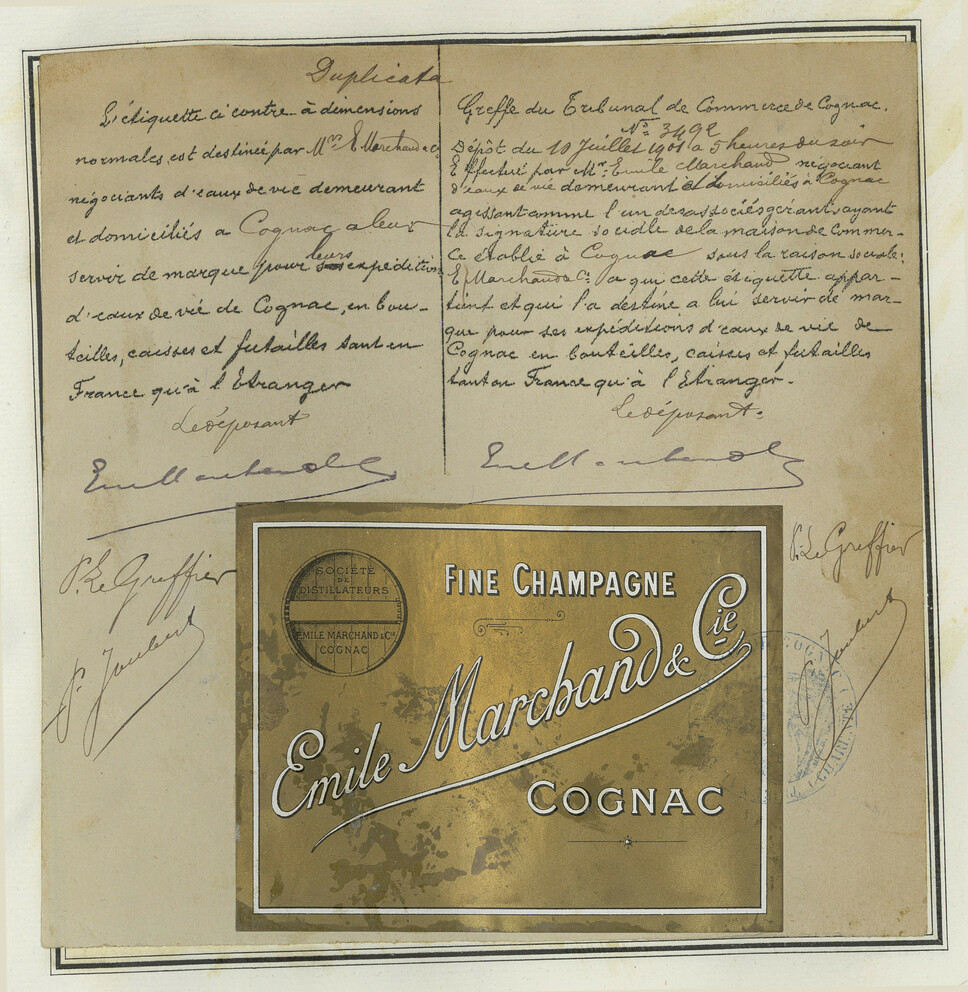 Duplicata
L'étiquette ci contre à dimensions
normales, est destinée par Mrs E Marchand & Co
négociants d'eaux de vie demeurant
et domiciliés a Cognac a leur
servir de marque pour leurs expéditions
d'eaux de vie de Cognac, en bou-
teilles, caisses et futailles tant en
France qu'à l'Etranger
Le déposant
Greffe du Tribunal de Commerce de Cognac.
No 3492
Dépôt du 10 Juillet 1901 a 5 heures du soir
Effectué par Mr. Emile Marchand négociant
d'eaux de vie demeurant et domiciliés à Cognac
agissant comme l'un des associés gérants, ayant
la signature sociale de la maison de Commer-
ce établie à Cognac sous la raison sociale:
E. Marchand & Co. a qui cette étiquette appar-
tient et qui l'a destine a lui servir de mar-
que pour ses expéditions d'eaux de vie de
Cognac en bouteilles, caisses et futailles
tant en France qu'à l'Etranger.
Le déposant.
P. Le Greffier
P. Joubert
P. Le Greffier
Joubert
SOCIÉTÉ
DE
DISTILLATEURS
EMILE MARCHAND & Cie
COGNAC
FINE CHAMPAGNE
Emile Marchand & Cie
COGNAC
COGNAC
CHARENTE